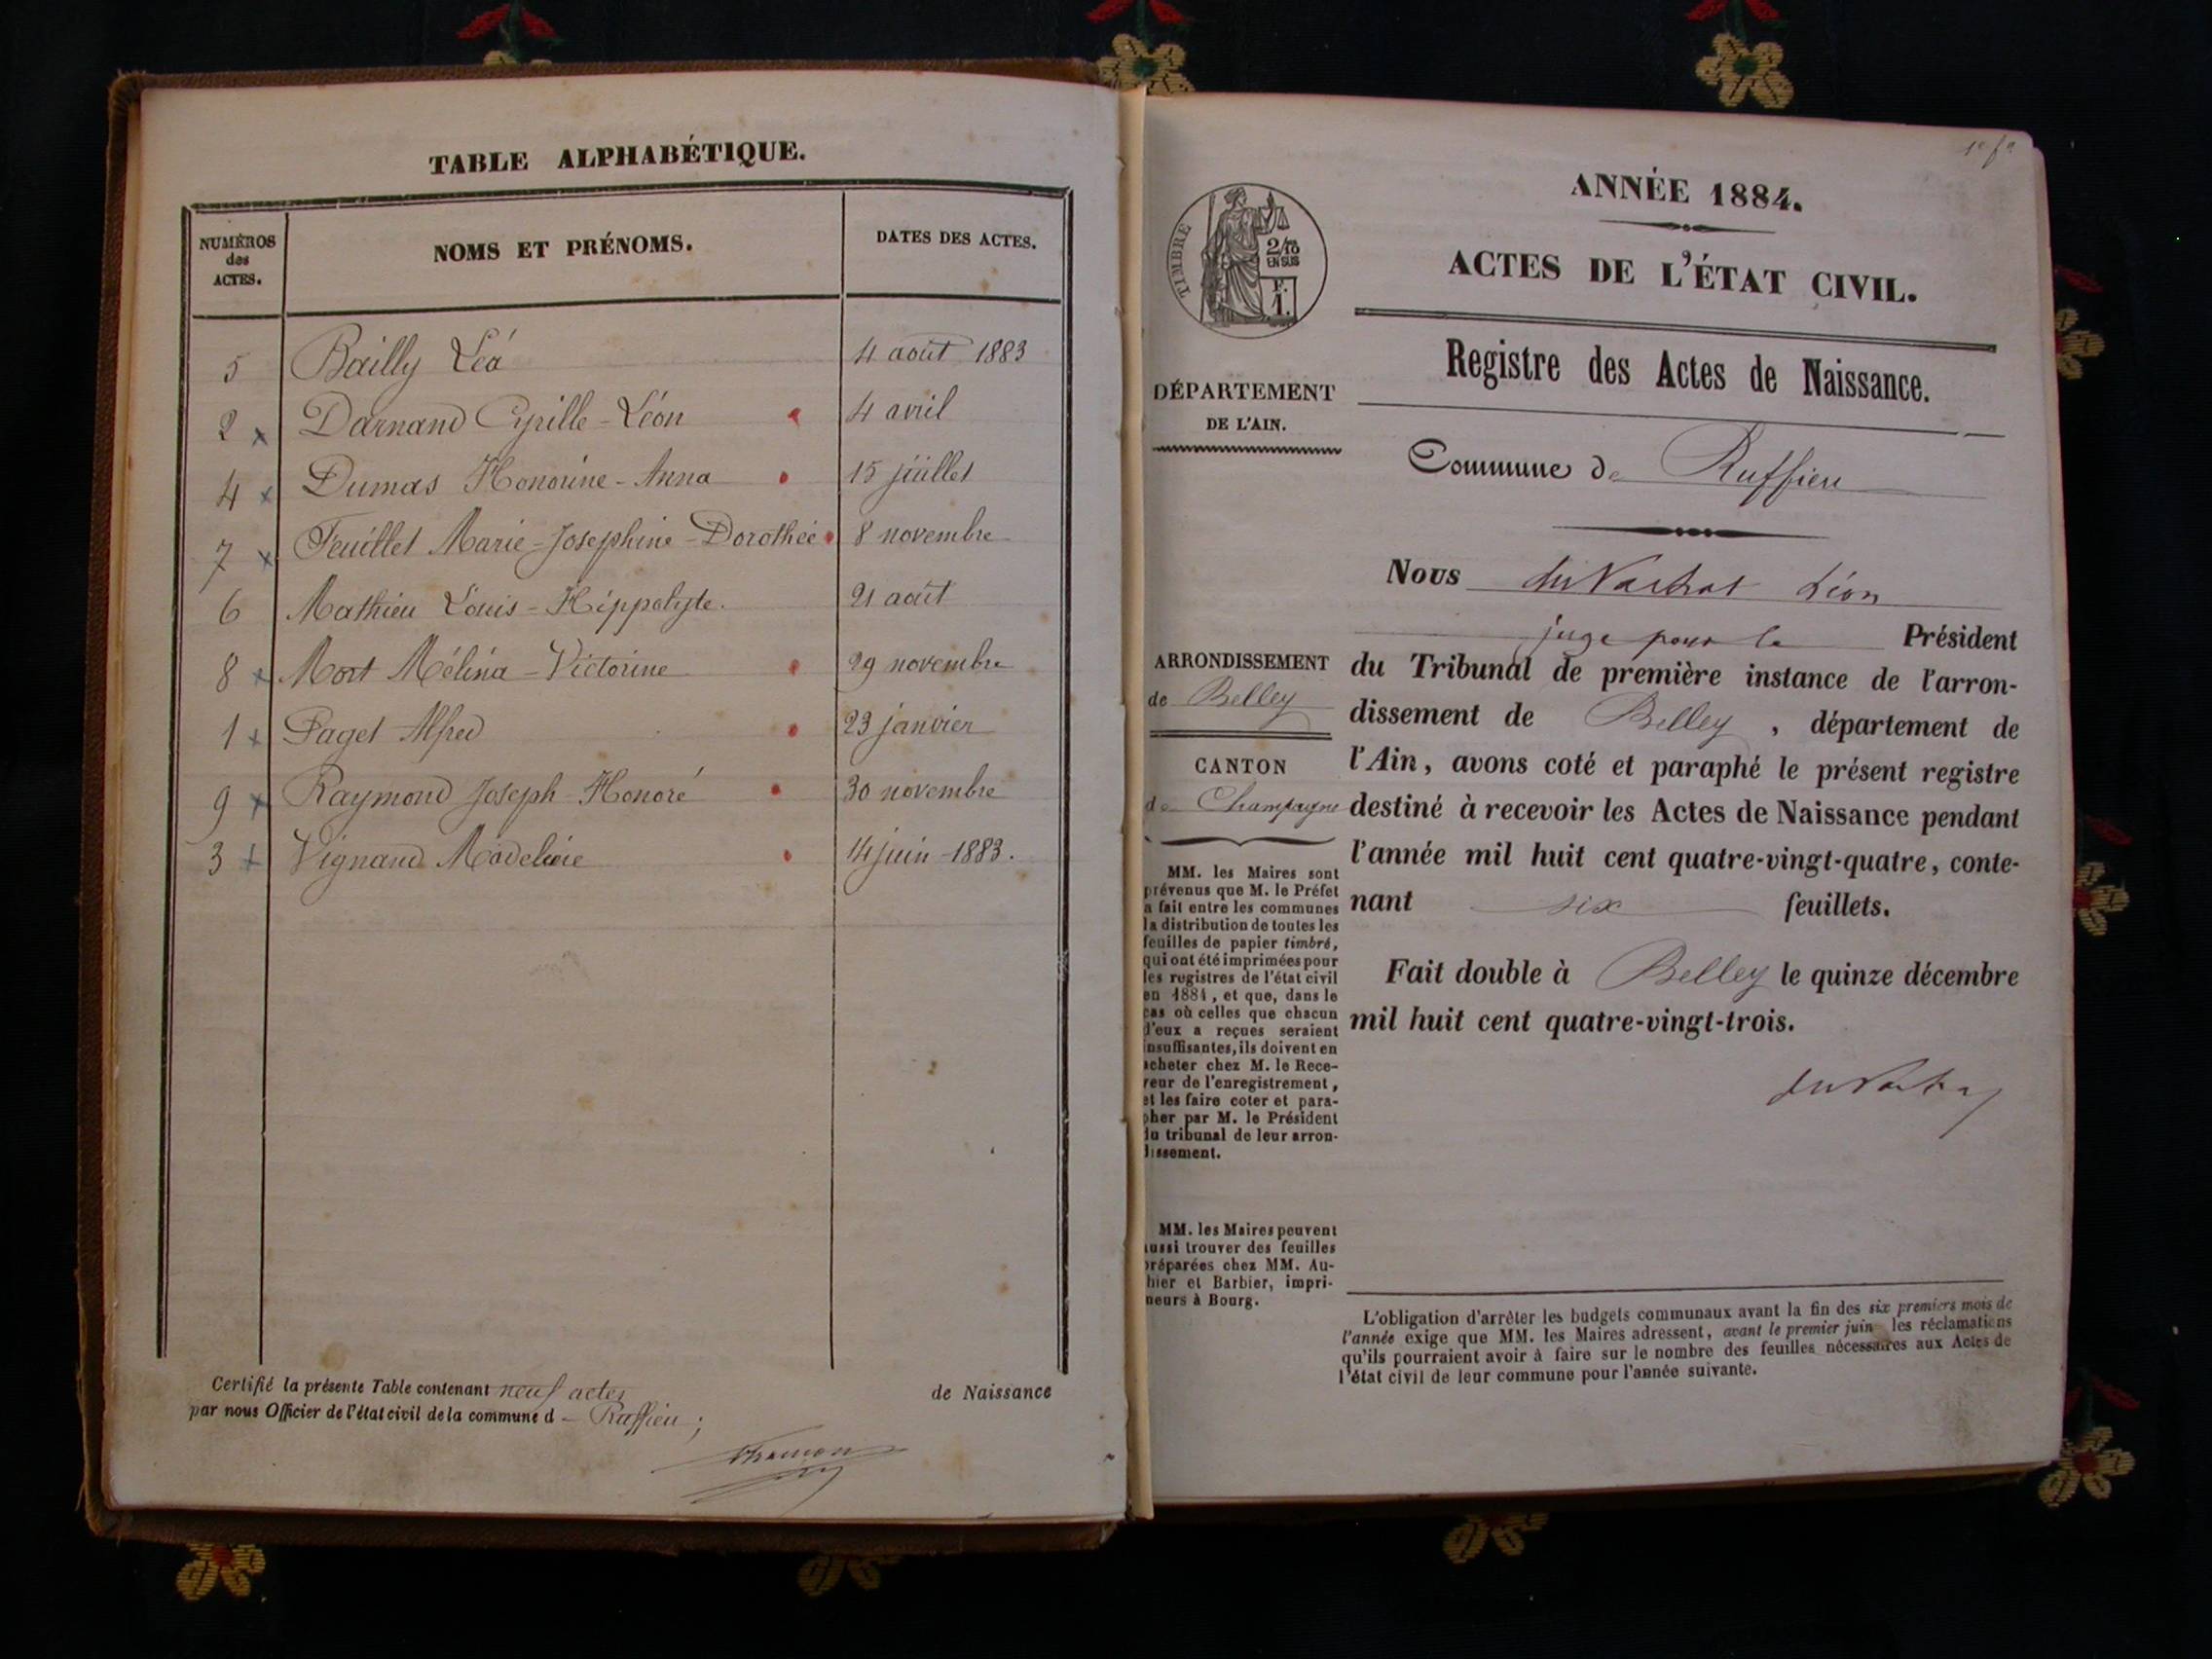 TABLE ALPHABÉTIQUE.
NUMÉROS des ACTES.
NOMS ET PRÉNOMS.
DATES DES ACTES.
5 Bailly Léa 4 août 1883
2 x Darnand Cyrille-Léon 4 avril
4 x Dumas Honorine-Anna 15 juillet
7 x Feuillet Marie-Josephine-Dorothée 8 novembre
6 Mathieu Louis-Hippolyte. 21 août
8 x Mort Mélina-Victorine 29 novembre
1 x Paget Alfred 23 janvier
9 x Raymond Joseph-Honoré 30 novembre
3 x Vignand Madeleine 14 juin 1883.
Certifié la présente Table contenant neuf actes de Naissance
par nous Officier de l'état civil de la commune d Ruffieu;
ANNÉE 1884.
ACTES DE L'ÉTAT CIVIL.
TIMBRE
2/10
EN SUS
F.
1.
Registre des Actes de Naissance.
DÉPARTEMENT
DE L'AIN.
Commune de Ruffieu
Nous du Vachat Léon
juge pour le Président
du Tribunal de première instance de l'arron-
dissement de Belley, département de
l'Ain, avons coté et paraphé le présent registre
destiné à recevoir les Actes de Naissance pendant
l'année mil huit cent quatre-vingt-quatre, conte-
nant six feuillets.
Fait double à Belley le quinze décembre
mil huit cent quatre-vingt-trois.
du Vachat
ARRONDISSEMENT
de Belley
CANTON
de Champagne
MM. les Maires sont
prévenus que M. le Préfet
a fait entre les communes
la distribution de toutes les
feuilles de papier timbré,
qui ont été imprimées pour
les registres de l'état civil
en 1884, et que, dans le
cas où celles que chacun
d'eux a reçues seraient
insuffisantes, ils doivent en
acheter chez M. le Rece-
veur de l'enregistrement,
et les faire coter et para-
pher par M. le Président
du tribunal de leur arron-
dissement.
MM. les Maires peuvent
aussi trouver des feuilles
préparées chez MM. Au-
thier et Barbier, impri-
meurs à Bourg.
L'obligation d'arrêter les budgets communaux avant la fin des six premiers mois de
l'année exige que MM. les Maires adressent, avant le premier juin les réclamations
qu'ils pourraient avoir à faire sur le nombre des feuilles nécessaires aux Actes de
l'état civil de leur commune pour l'année suivante.